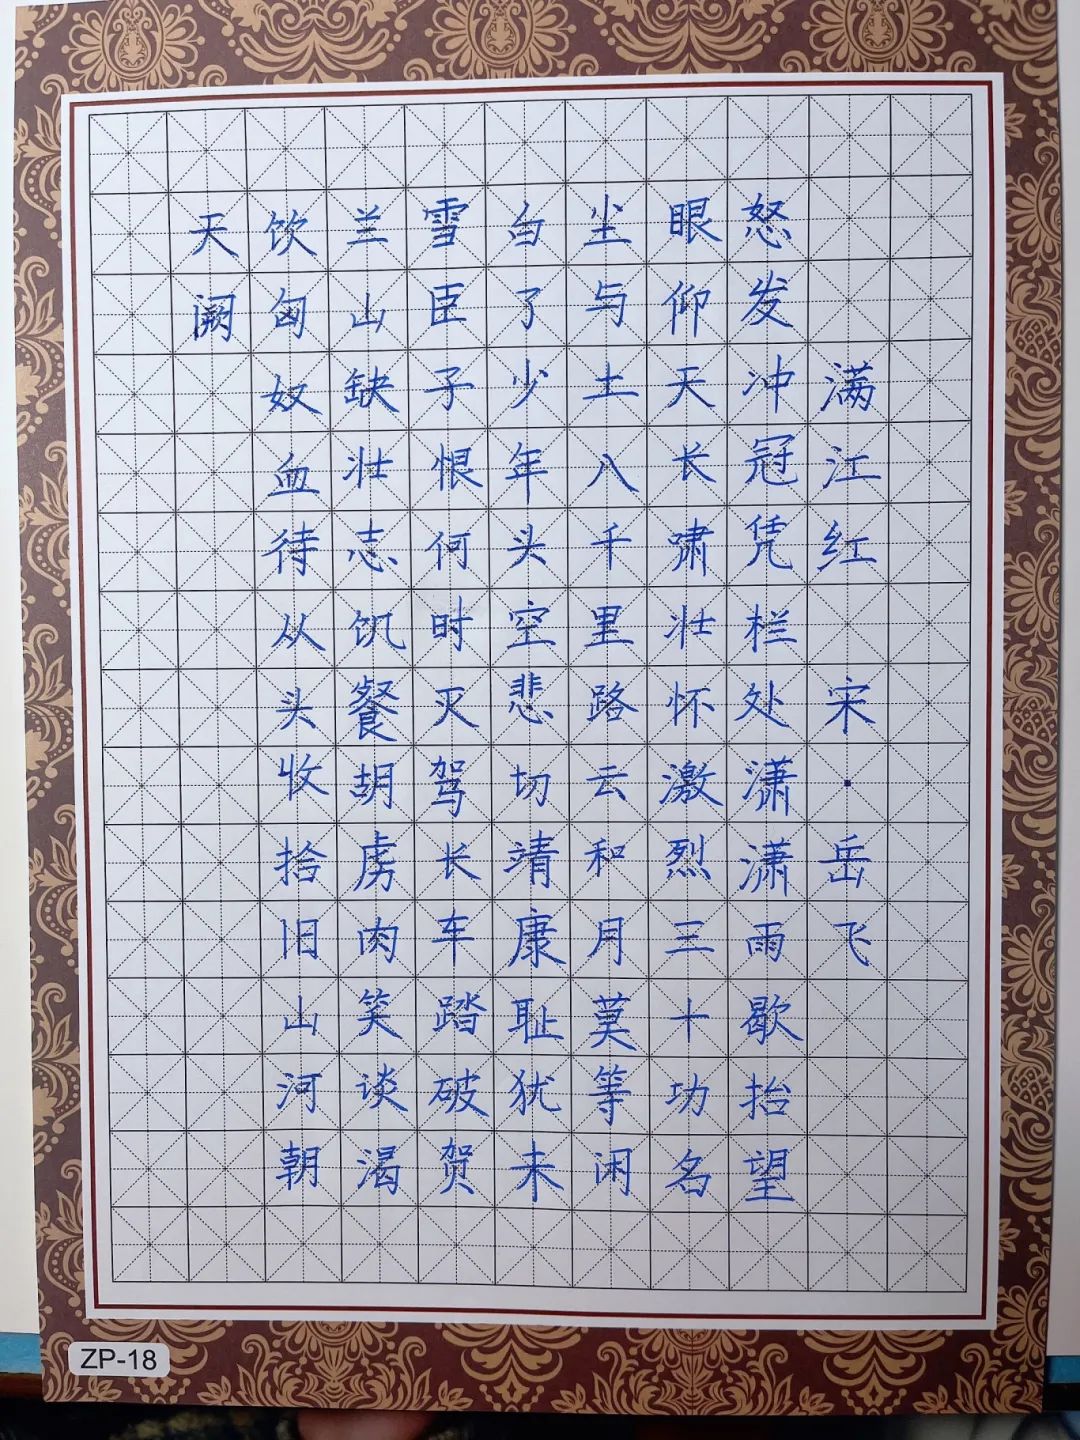 满江红 宋·岳飞
怒发冲冠凭栏处潇潇雨歇抬望
眼仰天长啸壮怀激烈三十功名
尘与土八千里路云和月莫等闲
白了少年头空悲切靖康耻犹未
雪臣子恨何时灭驾长车踏破贺
兰山缺壮志饥餐胡虏肉笑谈渴
饮匈奴血待从头收拾旧山河朝
天阙
ZP-18